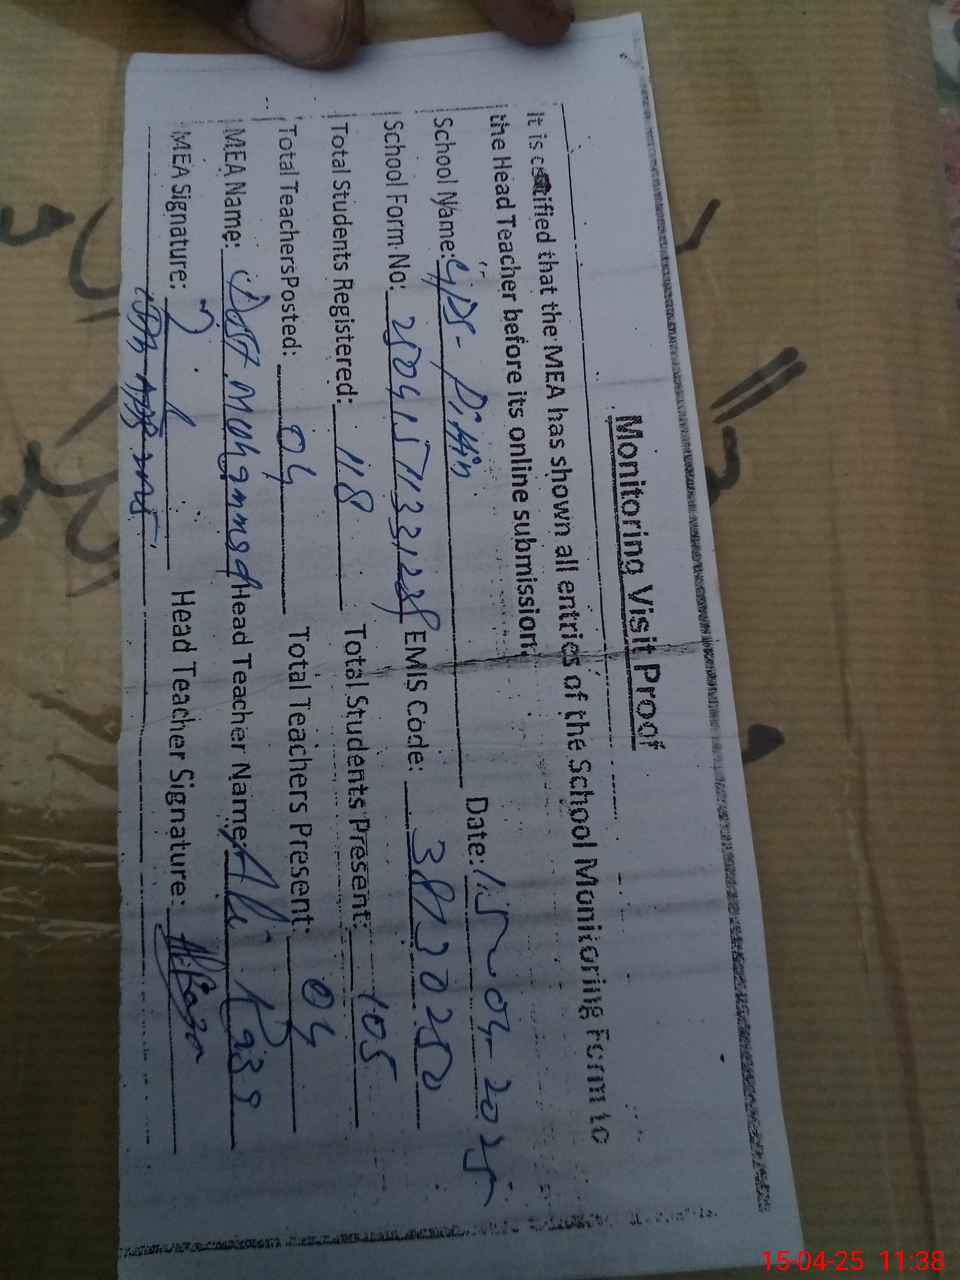 Monitoring Visit Proof
It is certified that the MEA has shown all entries of the School Monitoring Form to
the Head Teacher before its online submission.
School Name: GPS- Date: 15-04-2025
School Form No: EMIS Code: 38730250
Total Students Registered: 118 Total Students Present: 105
Total Teachers Posted: 04 Total Teachers Present: 04
MEA Name: Dost Mohammad Head Teacher Name: Ali Raza
MEA Signature: Head Teacher Signature: ARaza
15-04-25 11:38